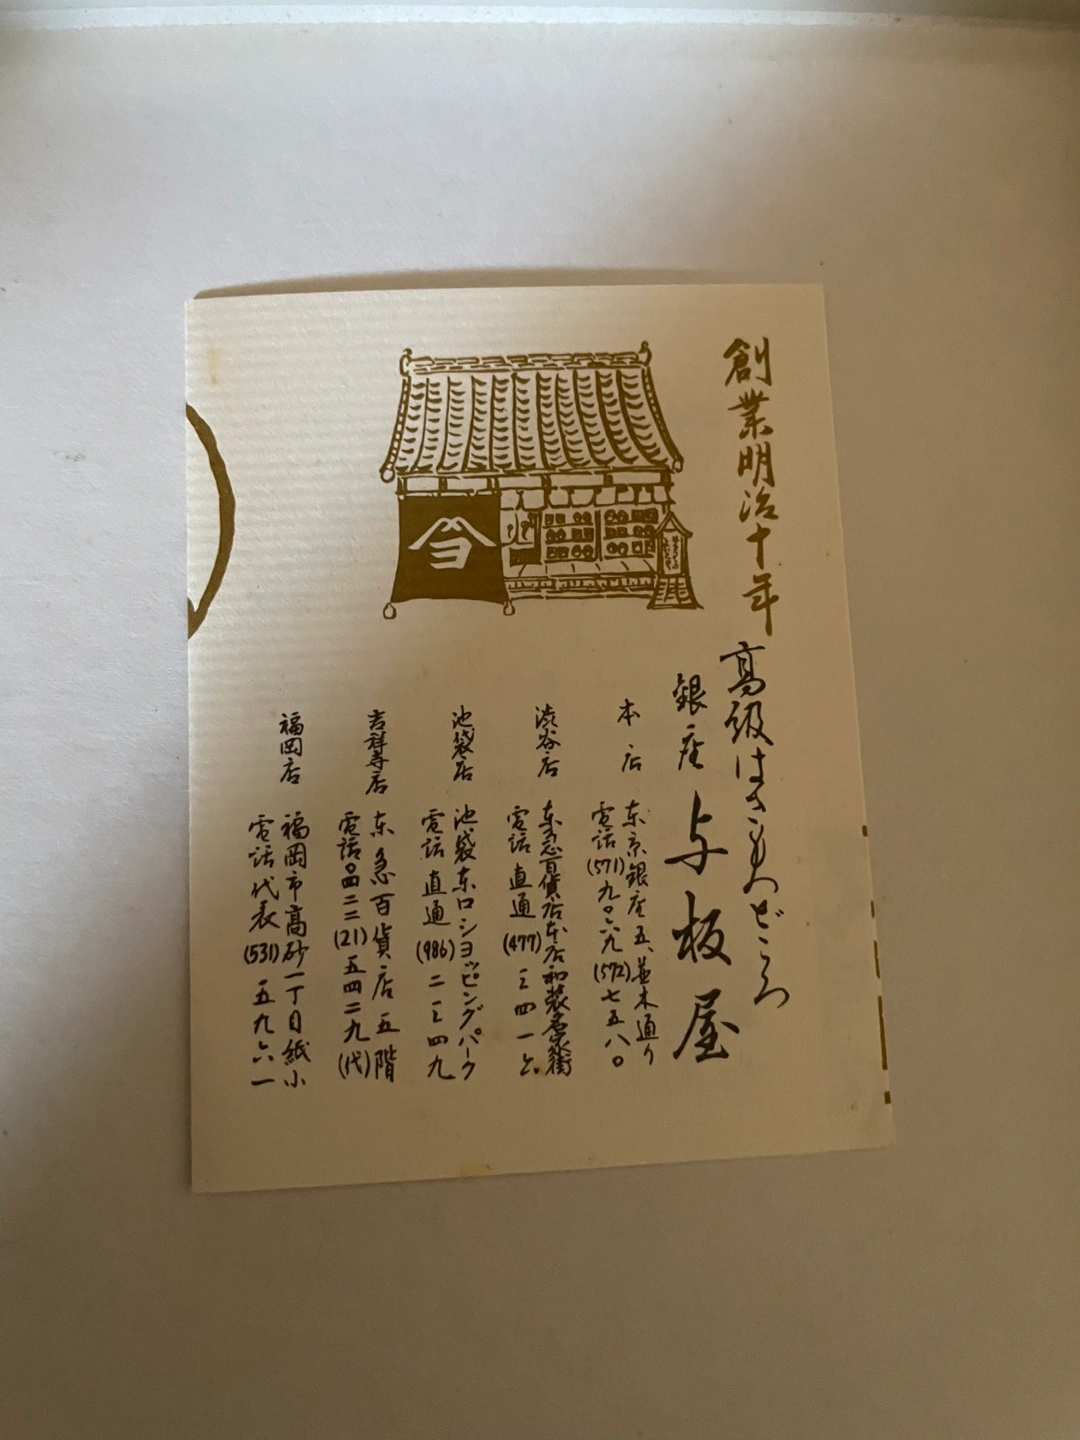 創業明治十年
高級はきものどころ
銀座 与板屋
本店
東京銀座五、並木通り
電話(571)九〇六九(572)七五八〇
渋谷店
東急百貨店本店和装名家街
電話直通(477)三四一六
池袋店
池袋東口ショッピングパーク
電話直通(986)二三四九
吉祥寺店
東急百貨店五階
電話〇四二二(21)五四二九(代)
福岡店
福岡市高砂一丁目紙小
電話代表(531)五九六一
ヨ